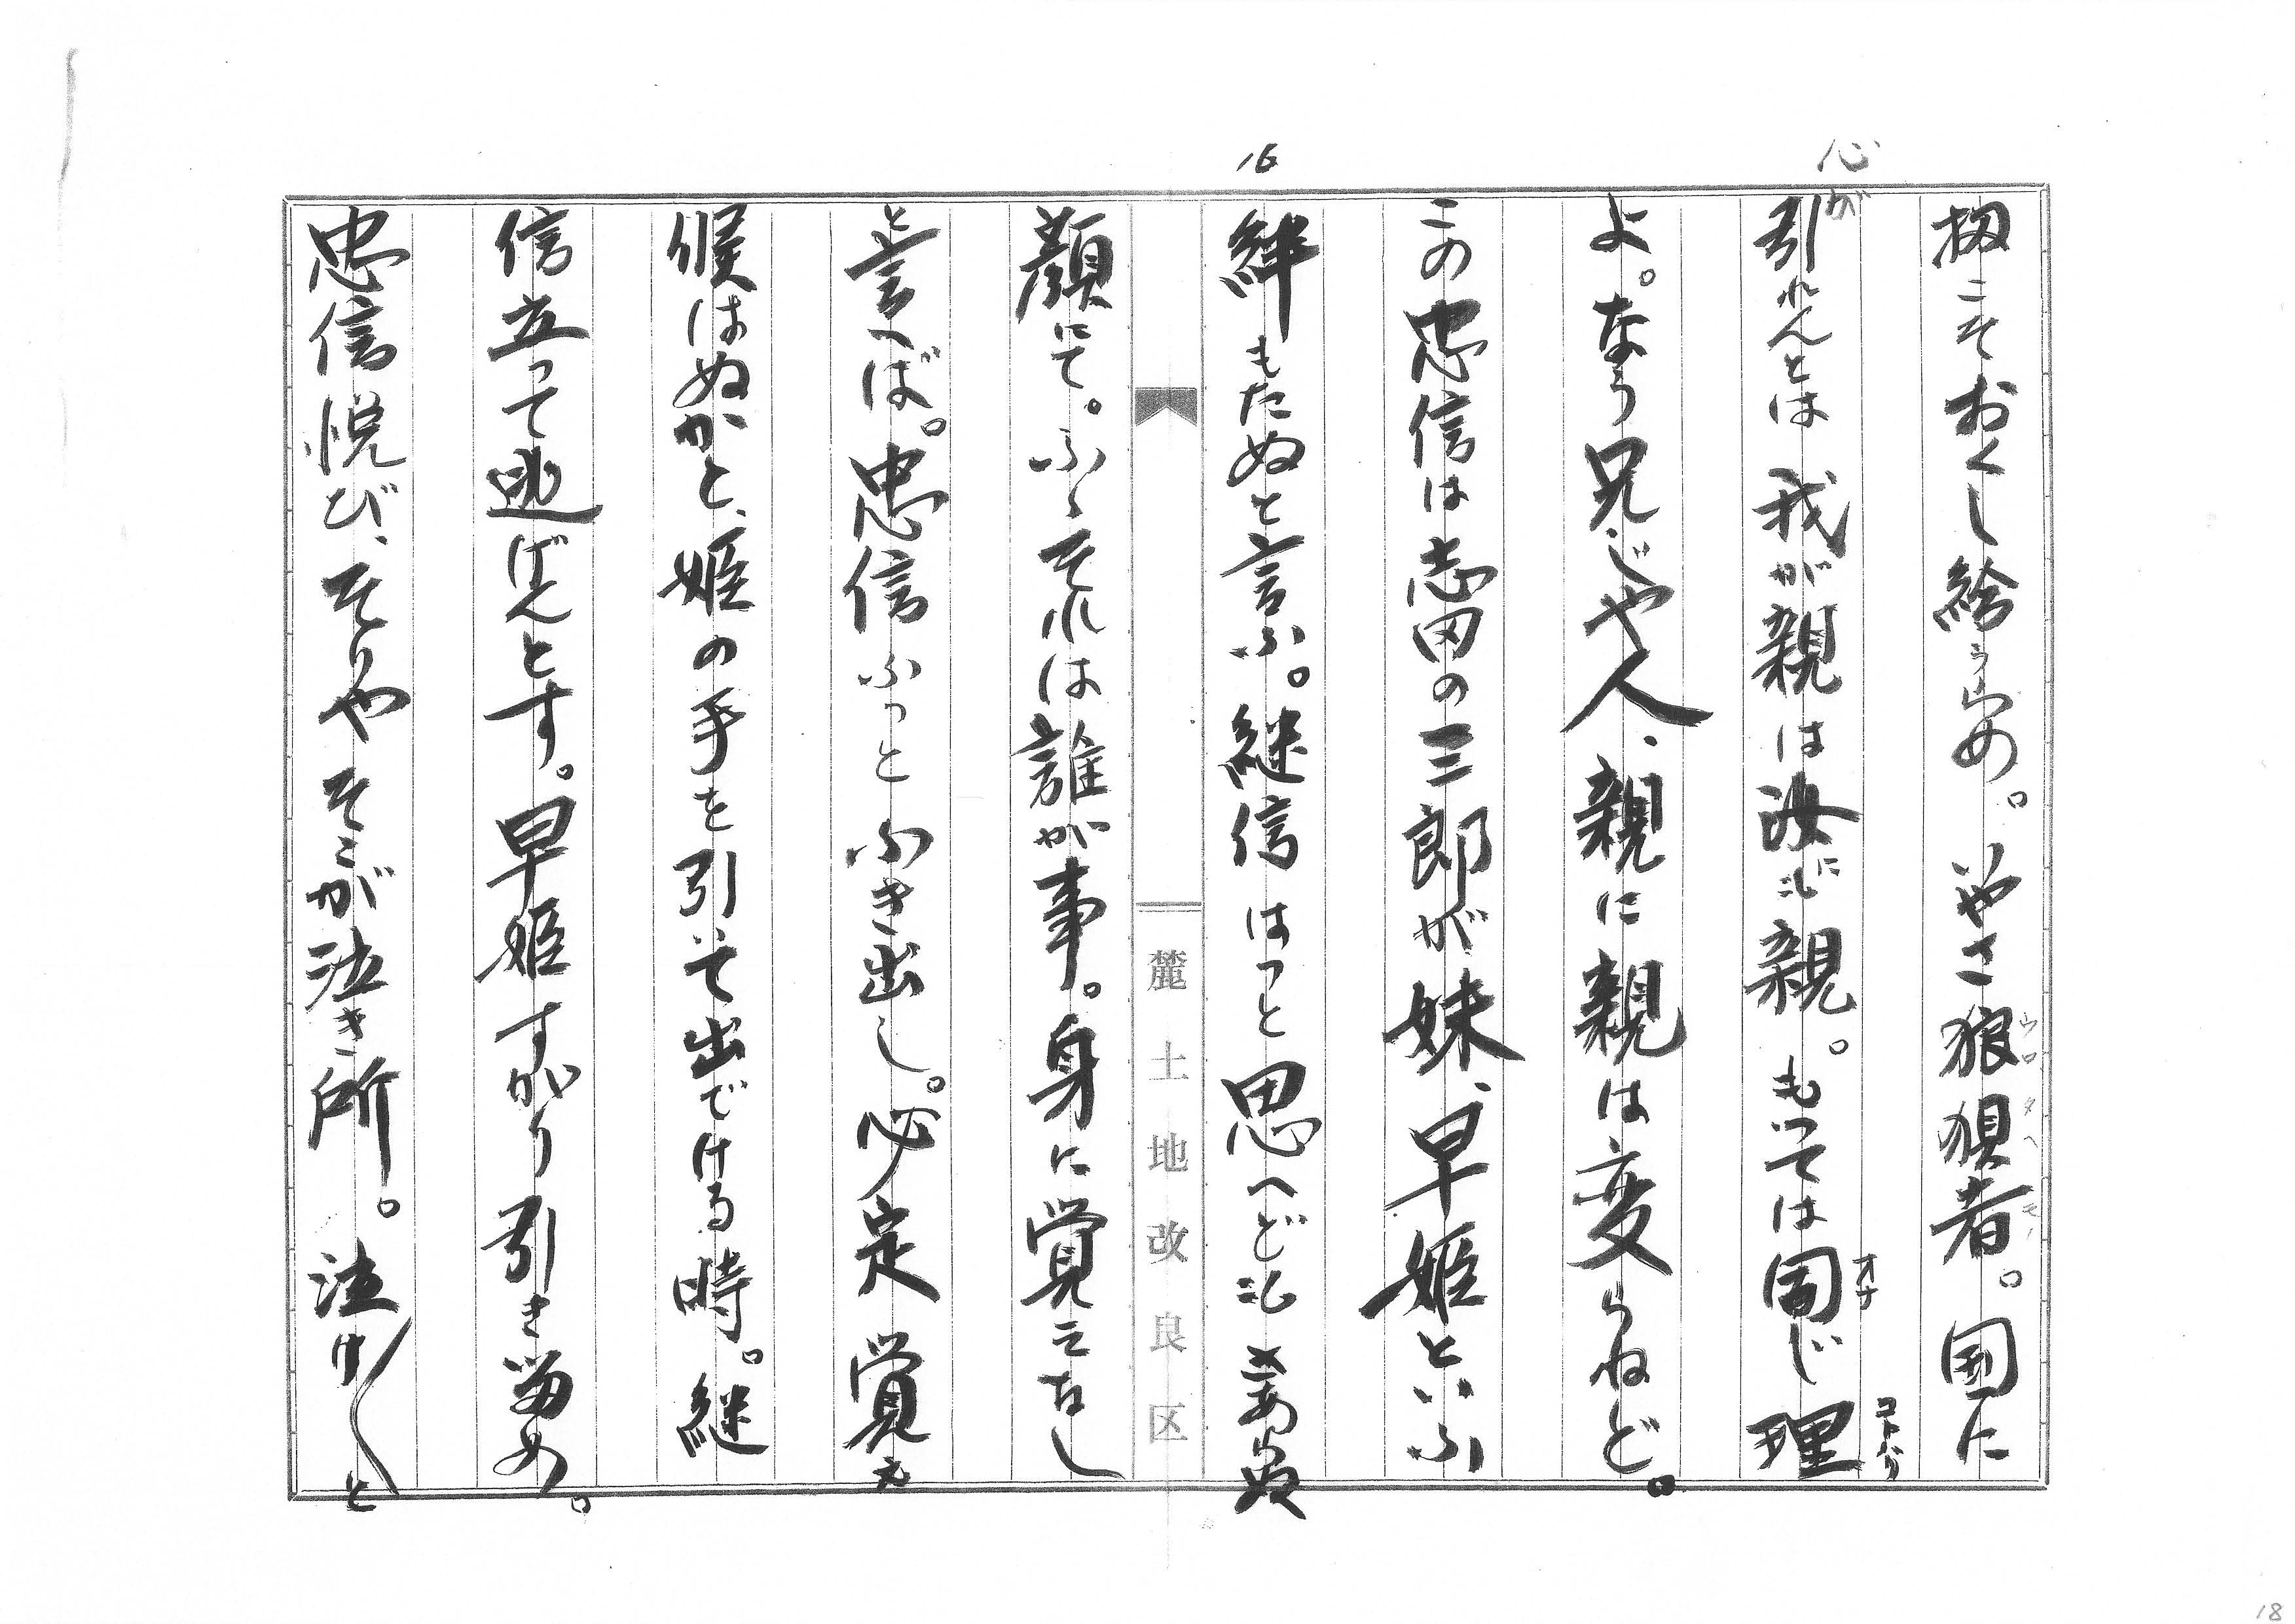 扨こそおくし給うらめ。いやさ狼狽者。国に
ウロタヘモノ
心が
引れんとは我が親は汝にも親。もつては同じ理
オナ
コトハリ
よ。なう兄じや人、親に親は変らねど。
この忠信は志田の三郎が妹、早姫といふ
16
絆もたぬと言ふ。継信はつと思へどもあらぬ
麓土地改良区
顔にて。ふゝそれは誰が事。身に覚えなし
と言へば。忠信ふつとふき出し。必定覚え
候はぬかと、姫の手を引いて出でける時。継
信立つて逃げんとす。早姫すがり引き留め。
忠信悦び、そりやそこが泣き所。泣け〱と
18